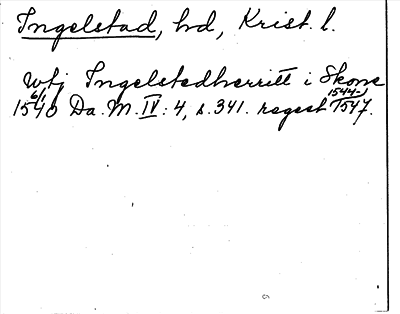 Ingelstad, hd, Krist. l.
wtj Ingelstedherritt i Skone
6/1 1540 Da. M. IV: 4, s. 341. regest 1544-1547.